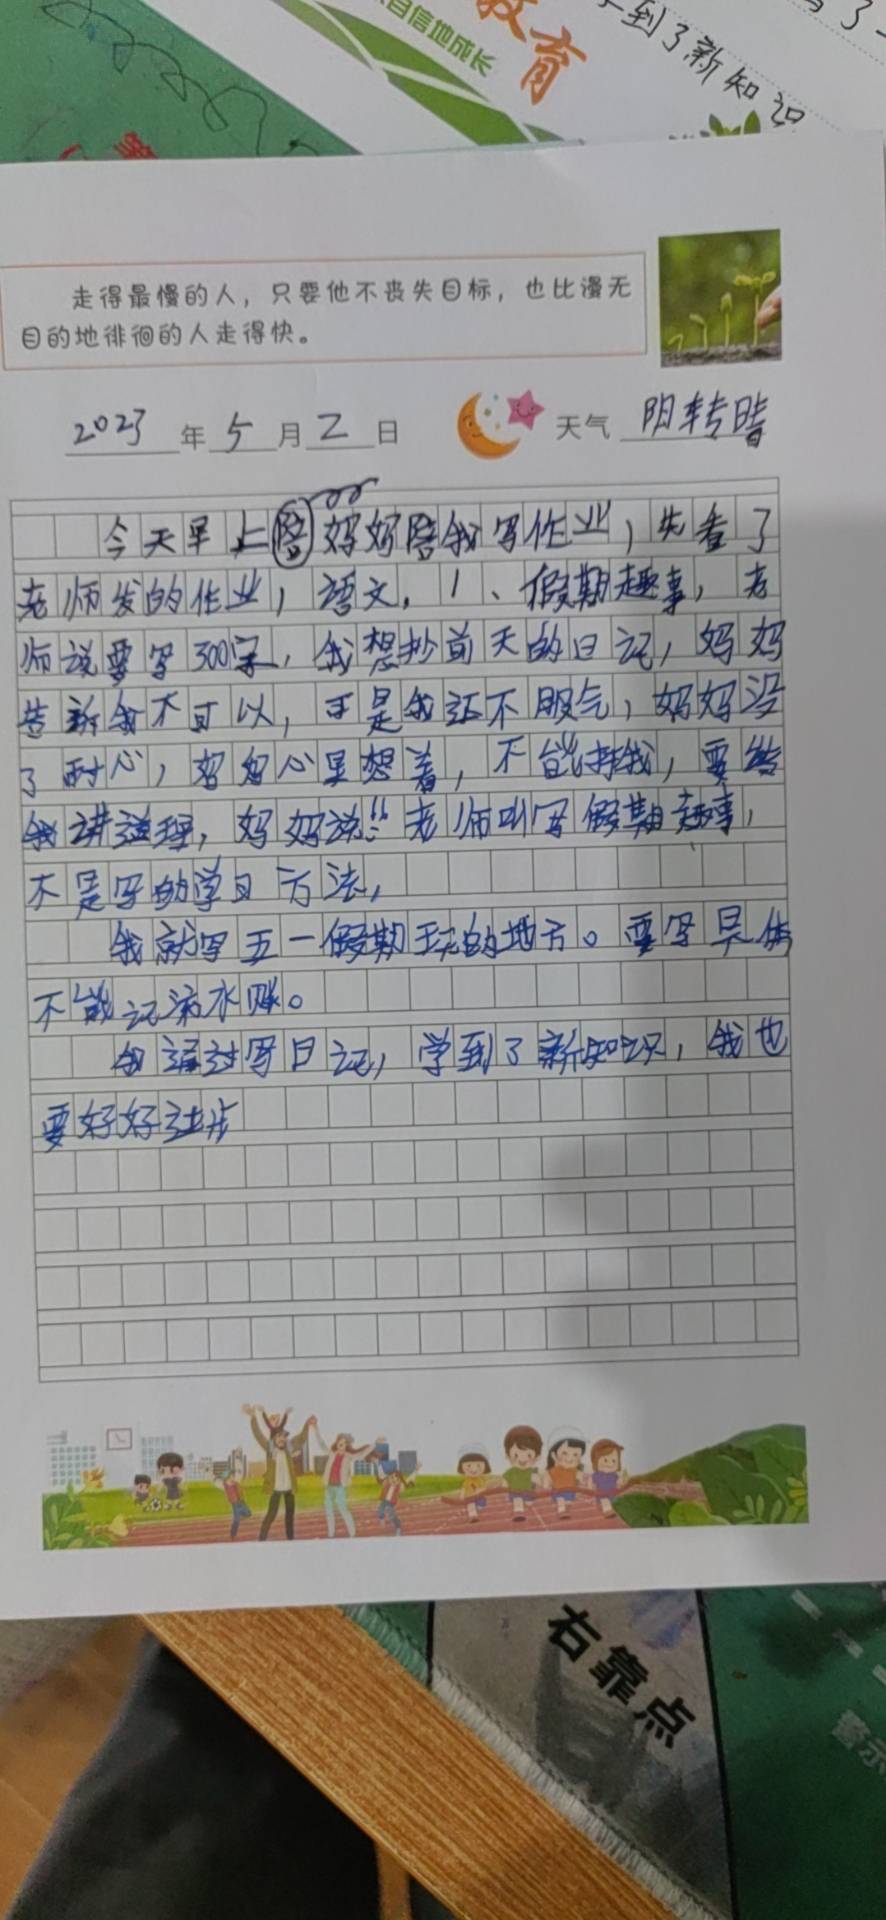 自信地成长
教育
学到了新知识
走得最慢的人，只要他不丧失目标，也比漫无
目的地徘徊的人走得快。
2023年5月2日 天气 阴转晴
今天早上陪妈妈陪我写作业，先看了
老师发的作业，语文，1、假期趣事，老
师说要写300字，我想抄前天的日记，妈妈
告新我不可以，可是我还不服气，妈妈没
了耐心，妈妈心里想着，不能打我，要给
我讲道理，妈妈说!!老师叫写假期趣事，
不是写的学习方法，
我就写五一假期玩的地方。要写具体
不能记流水账。
我通过写日记，学到了新知识，我也
要好好进步
右靠点
警示